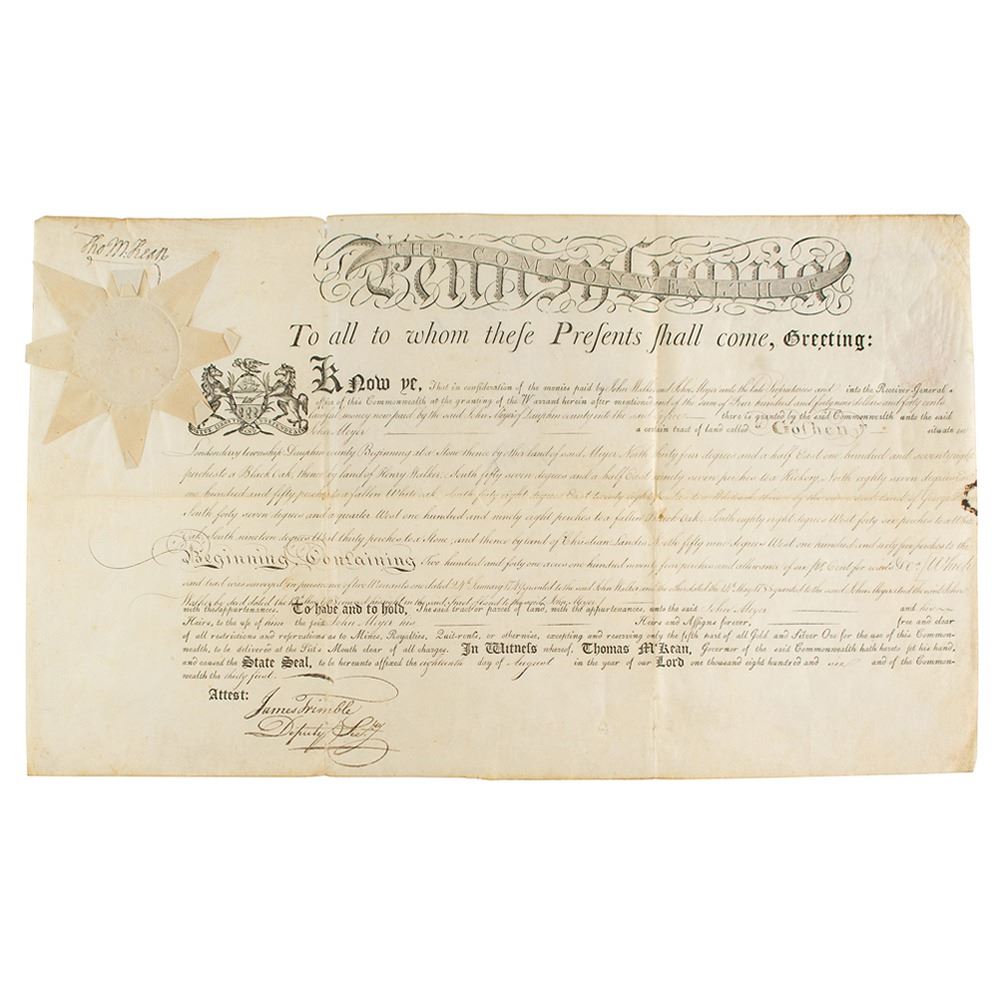 Tho M:Kean
THE COMMONWEALTH OF
Pennsylvania
To all to whom theſe Preſents ſhall come, Greeting:
Know ye, That in conſideration of the monies paid by John Walker and John Meyer unto the late and into the Receiver General's
office of this Commonwealth at the granting of the Warrant herein after mentioned and of the Sum of Four hundred and fortynine dollars and forty cents
lawful money now paid by the said John Meyer of Dauphin county into the said office there is granted by the ſaid Commonwealth unto the ſaid
John Meyer a certain tract of land called "Goshen" situate in
Londonderry township Dauphin county Beginning at a Stone thence by other land of said Meyer North thirty four degrees and a half East one hundred and seven eight
perches to a Black Oak, thence by land of Henry Walker, South fifty seven degrees and a half East ninety seven perches to a Hickory, North eighty seven degrees
one hundred and fifty perches to a fallen White oak South forty eight degrees East twenty eight land of George
South forty seven degrees and a quarter West one hundred and ninety eight perches to a fallen Black Oak, South eighty eight degrees West forty six perches to a White
Oak, South nineteen degrees West thirty perches to a Stone, and thence by land of Christian Landes North fifty nine degrees West one hundred and sixty five perches to the
Beginning, Containing Two hundred and forty one acres one hundred and ninety five perches and allowance of six pr. Cent for roads &c. Which
said tract was surveyed in pursuance of two Warrants one dated 24th January granted to the said John Walker and the other dated the May granted to the said John Meyer and the said John
Walker by deed dated the said tract of land to the said John Meyer
with the appurtenances. To have and to hold, The ſaid tract or parcel of land, with the appurtenances unto the ſaid John Meyer and his
Heirs, to the uſe of him the ſaid John Meyer his Heirs and Aſſigns forever, free and clear
of all reſtrictions and reſervations as to Mines, Royalties, Quit-rents, or otherwiſe, excepting and reſerving only the fifth part of all Gold and Silver Ore for the uſe of this Common-
wealth, to be delivered at the Pit's Mouth clear of all charges. In Witneſs whereof, Thomas M'Kean, Governor of the ſaid Commonwealth hath hereto ſet his hand,
and cauſed the State Seal, to be hereunto affixed the eighteenth day of August in the year of our Lord one thouſand eight hundred and six and of the Common-
wealth the thirty first.
Attest:
James Trimble
Deputy Secy